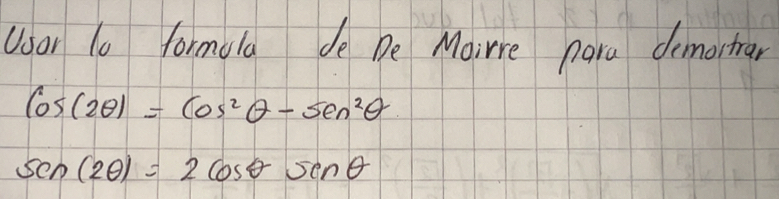 Usar la formula de De Moivre para demostrar
Cos(2θ) = Cos²θ - sen²θ
sen(2θ) = 2 Cosθ senθ